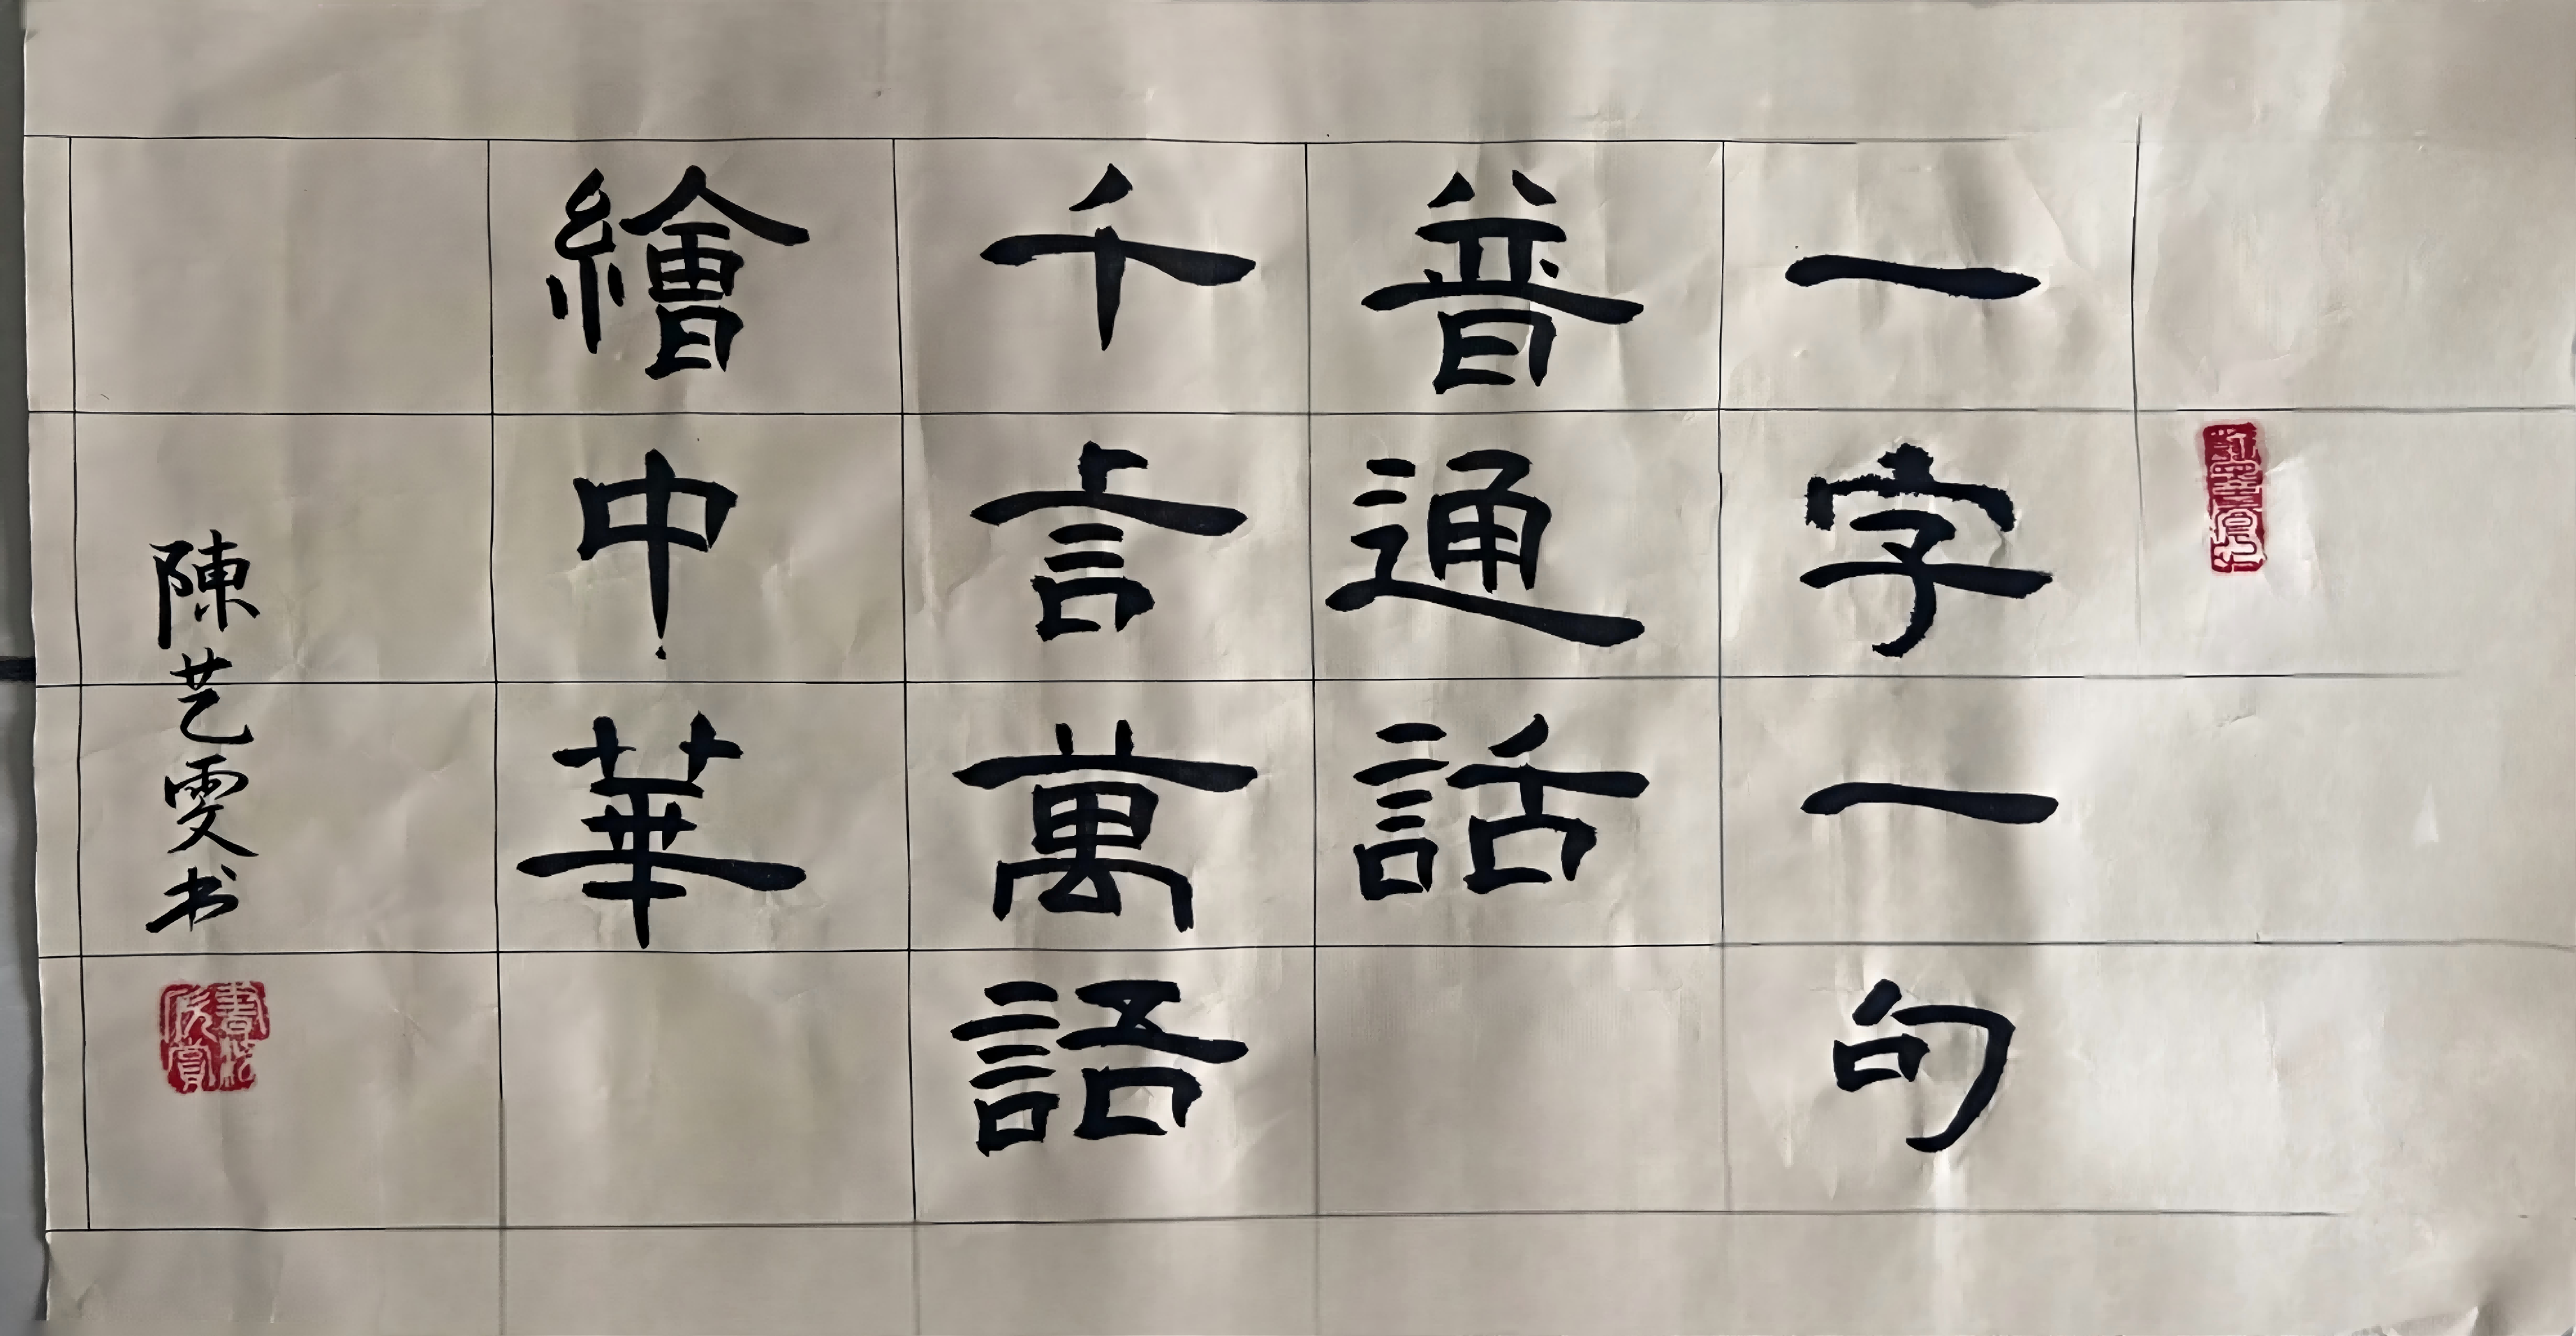 一字一句
普通話
千言萬語
繪中華
陳艺雯书